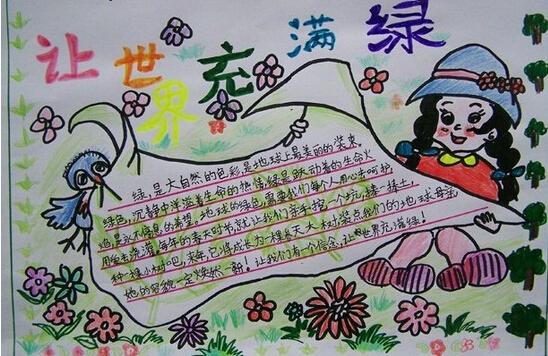 让世界充满绿
绿,是大自然的色彩是地球上最美的的装束
绿色,沉静中洋溢着生命的热情绿是跃动着的生命火
焰是永不停息的希望。地球的绿色,需要我们每个人用心去呵护,
用生去浇灌每年的春天时节,就让我们亲手挖一个坑,揍一捧土,
种一棵小树吧,来年,它将成长为一棵参天大树装点我们的地球母亲
她的容貌一定焕然一新!让我们有个信念,让世界充满绿!